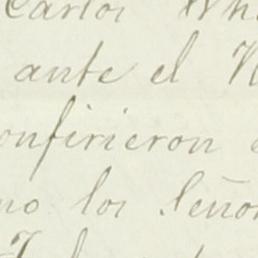 Carlos Wh
ante el
onfirieron
mo los Señor